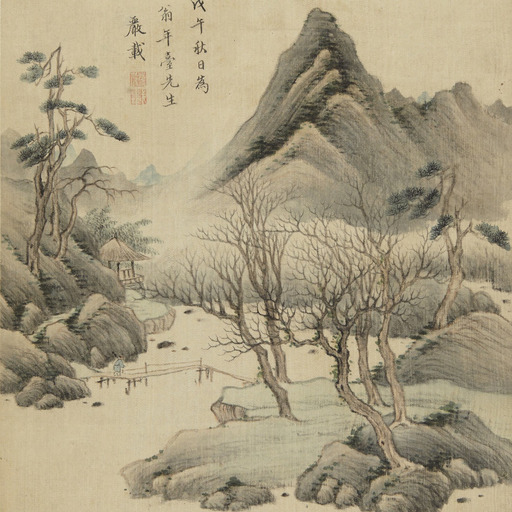 戊午秋日為
翁年臺先生
嚴載